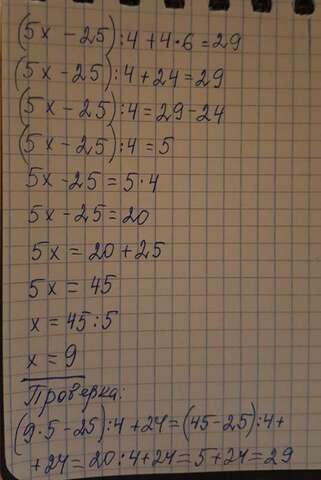 (5x - 25):4 + 4·6 = 29
(5x - 25):4 + 24 = 29
(5x - 25):4 = 29 - 24
(5x - 25):4 = 5
5x - 25 = 5·4
5x - 25 = 20
5x = 20 + 25
5x = 45
x = 45:5
x = 9
Проверка:
(9·5 - 25):4 + 24 = (45 - 25):4 +
+ 24 = 20:4 + 24 = 5 + 24 = 29